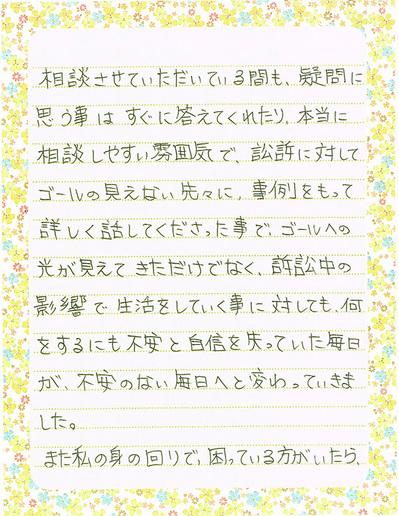 相談させていただいている間も、疑問に
思う事は すぐに答えてくれたり、本当に
相談しやすい雰囲気で、訟訴に対して
ゴールの見えない先々に、事例をもって
詳しく話してくださった事で、ゴールへの
光が見えて きただけでなく、訴訟中の
影響で 生活をしていく事に対しても、何
をするにも不安と自信を失っていた毎日
が、不安のない毎日へと変わっていきま
した。
また私の身の回りで、困っている方がいたら、